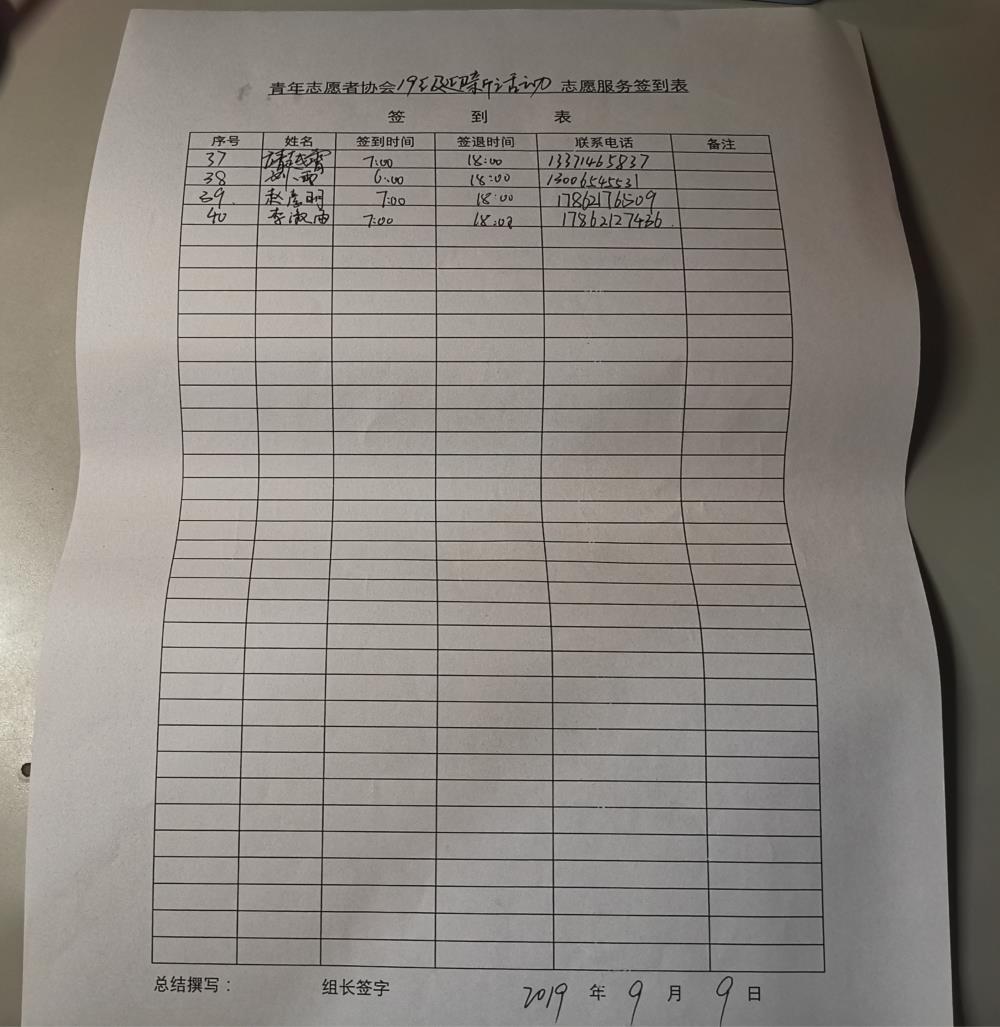 青年志愿者协会19级迎新活动 志愿服务签到表
签 到 表
序号 姓名 签到时间 签退时间 联系电话 备注
37 7:00 18:00 13371465837
38 6:00 18:00 13006545531
39. 赵彦明 7:00 18:00 17862176509
40 李淑雨 7:00 18:00 17862127436.
总结撰写： 组长签字 2019 年 9 月 9 日